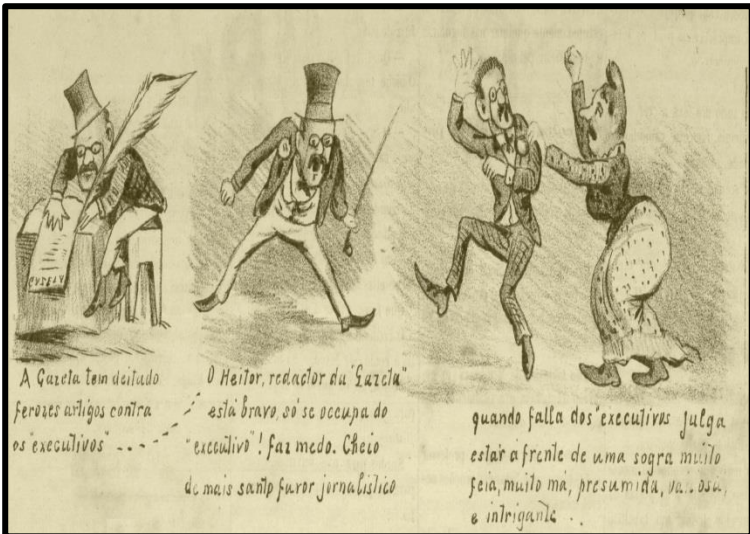 GAZETA
A Gazeta tem deitado
ferozes artigos contra
os "executivos" ....
O Heitor, redactor da "Gazeta"
está bravo, só se occupa do
"executivo"! faz medo. Cheio
de mais santo furor jornalistico
quando falla dos "executivos julga
estar á frente de uma sogra muito
feia, muito má, presumida,
e intrigante ..